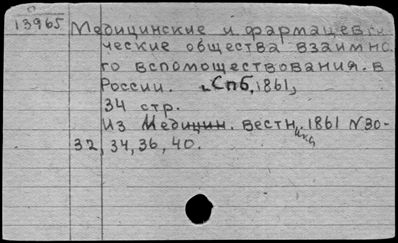 13965 Медицинские и фармацевти-
ческие общества взаимно-
го вспомоществования в
России. СПб, 1861,
34 стр.
Из Медицин. вестн. 1861 N30-
32, 34, 36, 40.